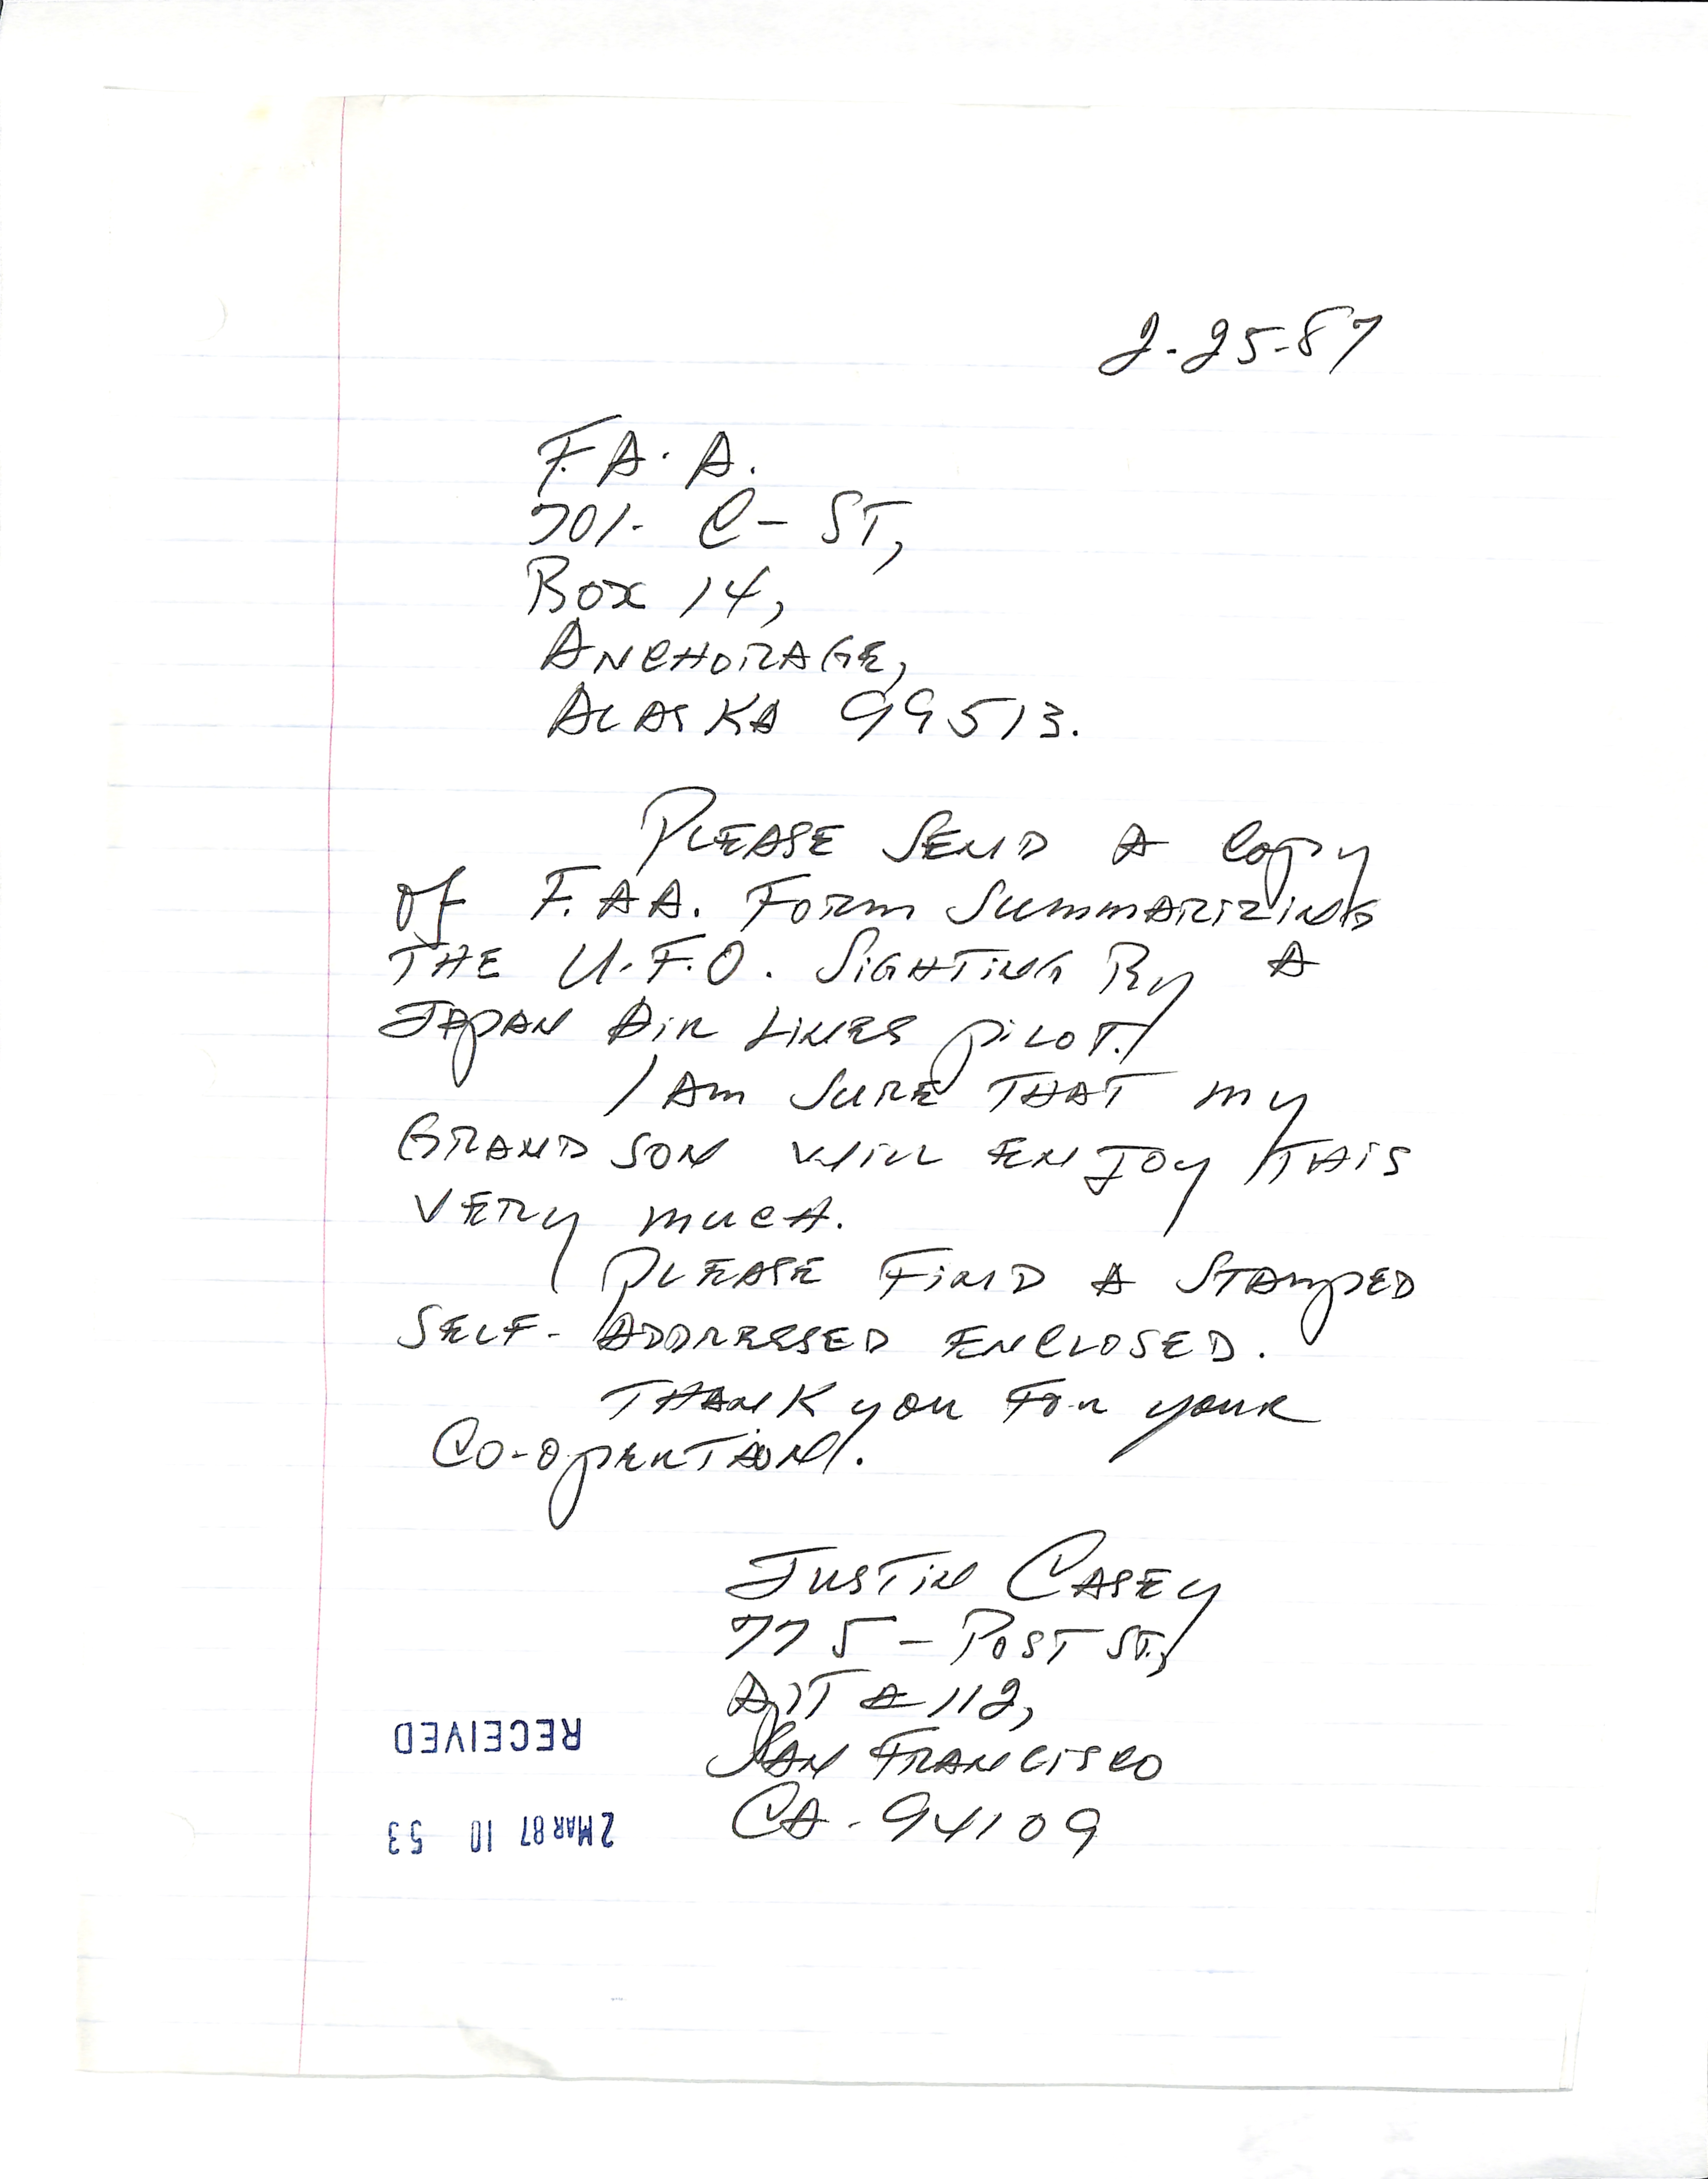 2-25-87
F.A.A.
701- C- ST,
BOX 14,
ANCHORAGE,
ALASKA 99513.
PLEASE SEND A COPY
OF F.A.A. FORM SUMMARIZING
THE U.F.O. SIGHTING BY A
JAPAN AIR LINES PILOT.
I AM SURE THAT MY
GRAND SON WILL ENJOY THIS
VERY MUCH.
PLEASE FIND A STAMPED
SELF-ADDRESSED ENCLOSED.
THANK YOU FOR YOUR
CO-OPERTAION.
JUSTIN CASEY
775 - POST ST.,
APT # 112,
SAN FRANCISCO
CA - 94109
RECEIVED
2 MAR 87 10 53